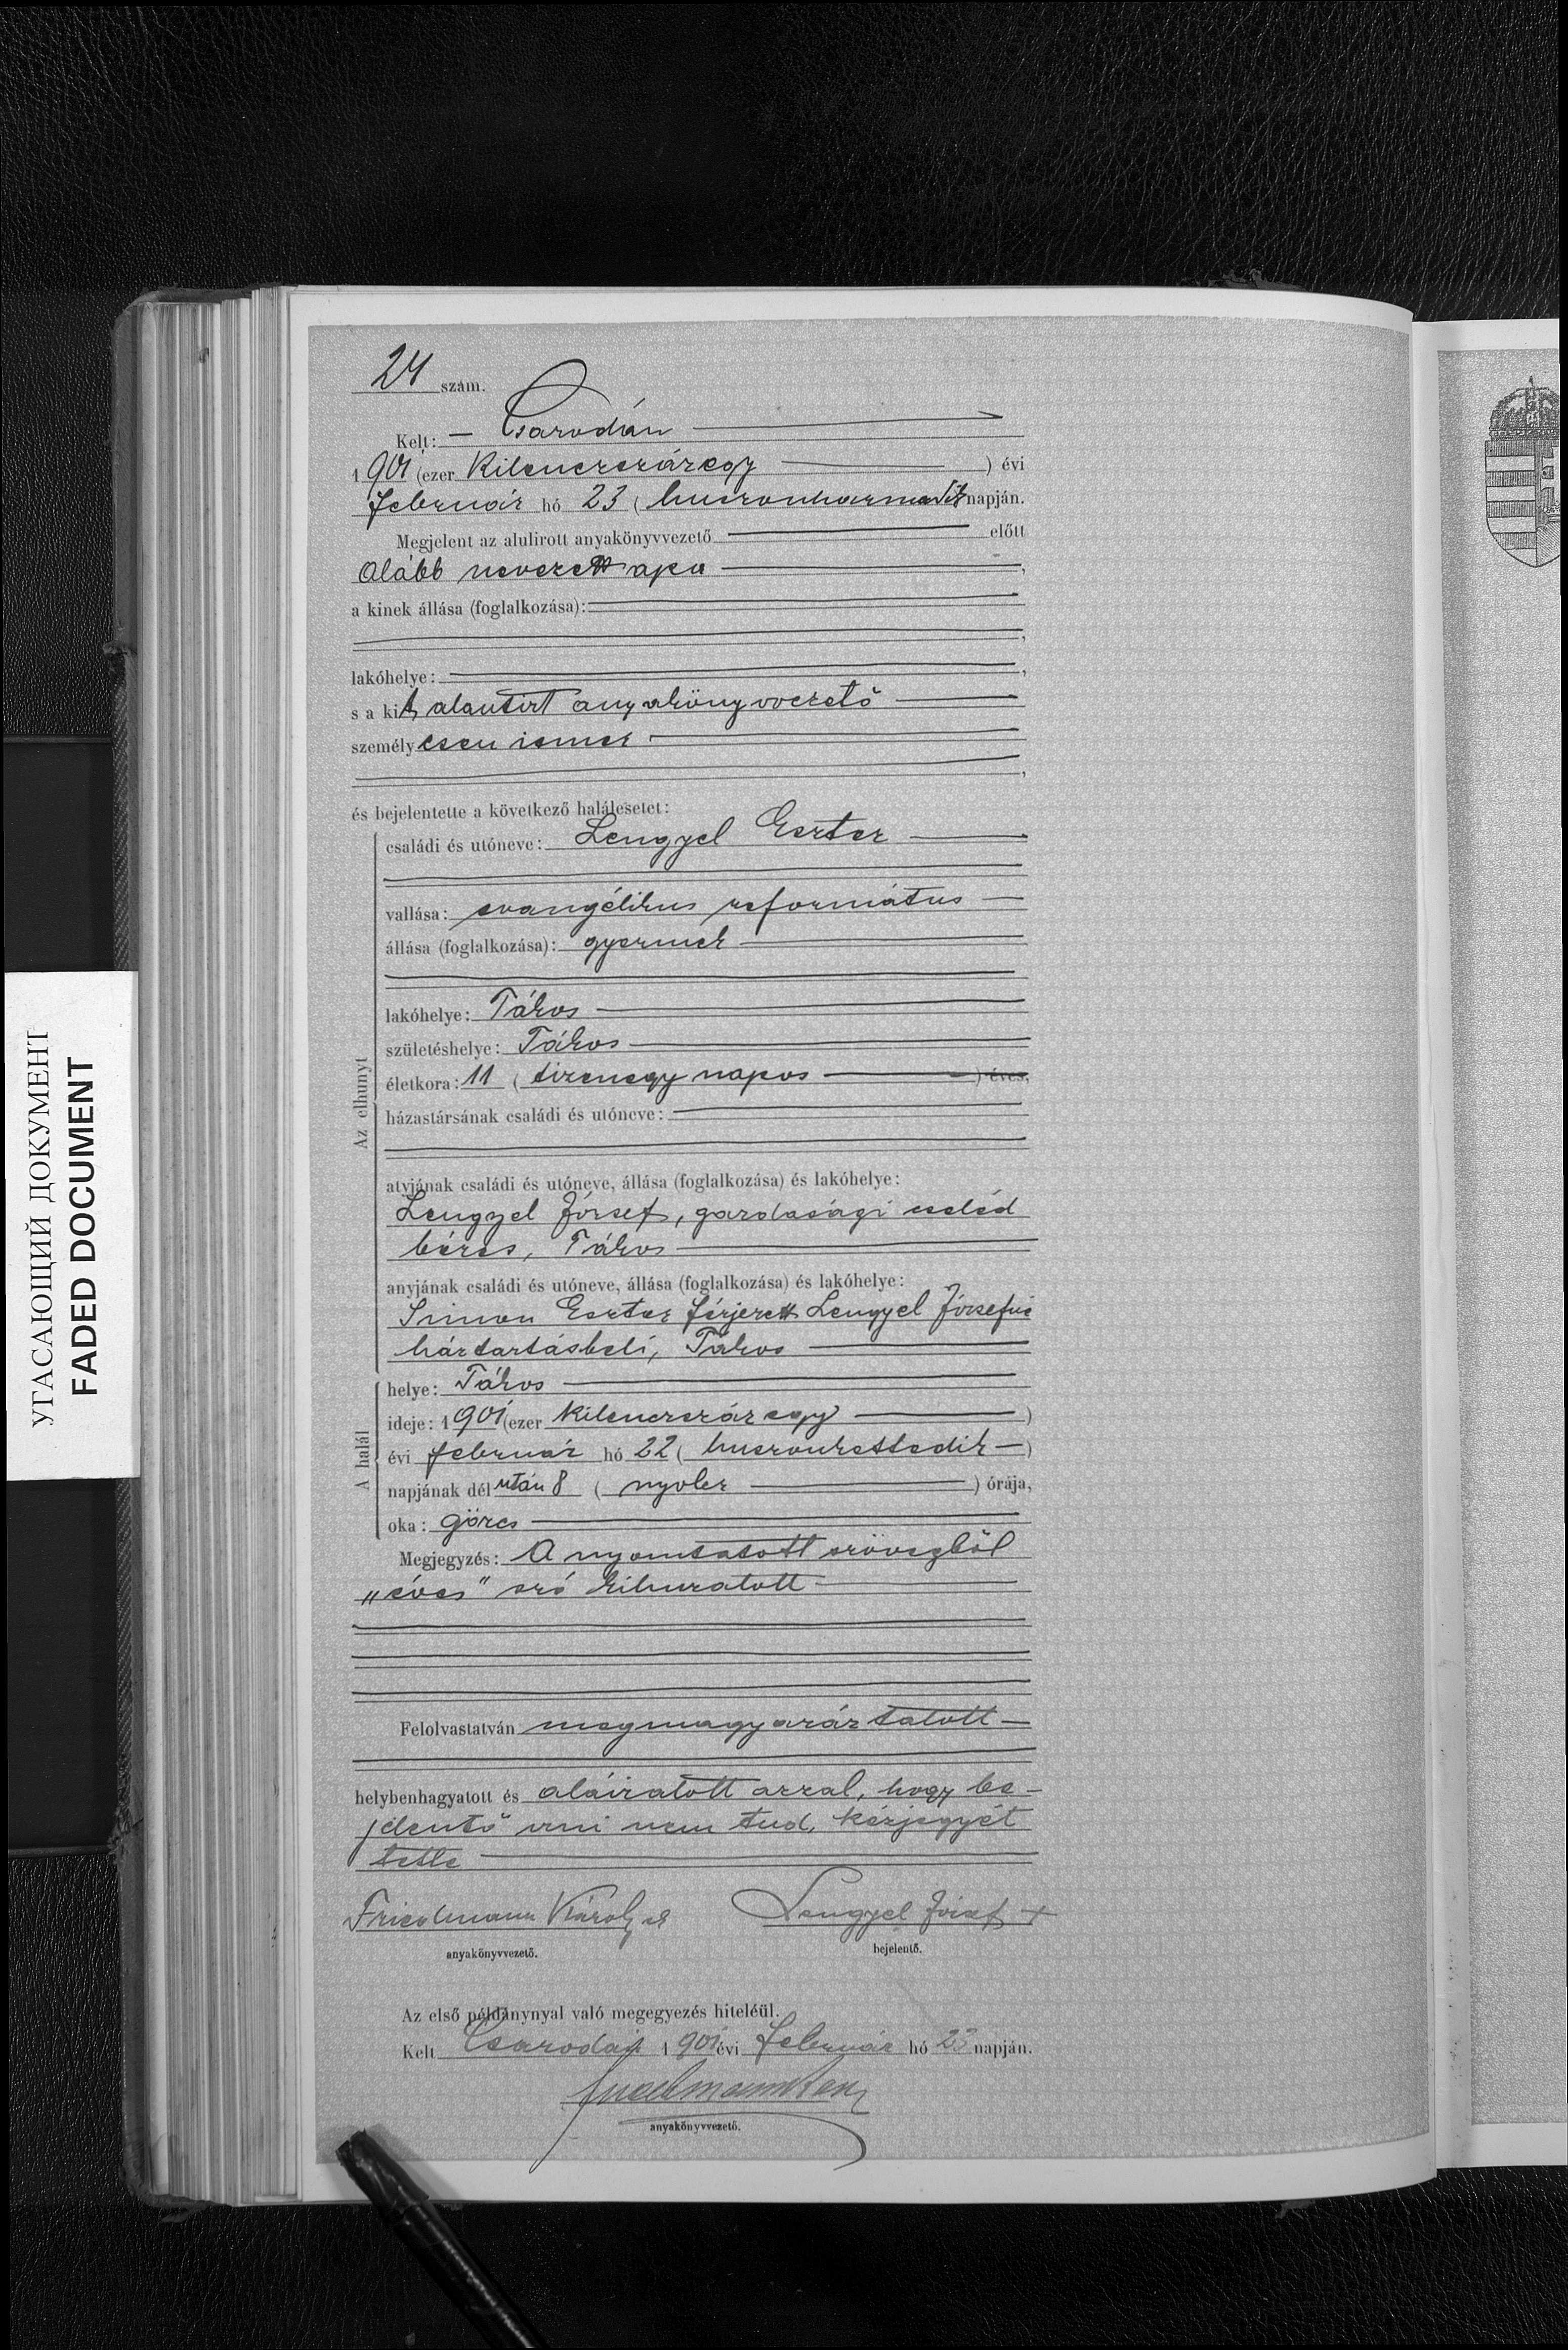 24 szám.
Kelt: — Csarodán
1901 (ezer kilenczszázegy ) évi
február hó 23 ( huszonharmadik napján.
Megjelent az alulirott anyakönyvvezető előtt
Alább nevezett apa ,
a kinek állása (foglalkozása):
,
lakóhelye: ,
s a kit alantirt anyakönyvvezető
személyesen ismer
,
és bejelentette a következő halálesetet:
Az elhunyt
családi és utóneve: Lengyel Eszter
vallása: evangélikus református
állása (foglalkozása): gyermek
lakóhelye: Tákos
születéshelye: Tákos
életkora: 11 ( tizenegy napos ) éves,
házastársának családi és utóneve:
atyjának családi és utóneve, állása (foglalkozása) és lakóhelye:
Lengyel József, gazdasági cseléd
béres, Tákos
anyjának családi és utóneve, állása (foglalkozása) és lakóhelye:
Simon Eszter férjezett Lengyel Józsefné
háztartásbeli, Tákos
A halál
helye: Tákos
ideje: 1901 (ezer kilenczszázegy )
évi február hó 22 ( huszonkettedik )
napjának délután 8 ( nyolcz ) órája,
oka: görcs
Megjegyzés: A nyomtatott szövegből
„éves" szó kihuzatott
Felolvastatván megmagyaráztatott
helybenhagyatott és aláiratott azzal, hogy be-
jelentő irni nem tud, kézjegyét
tette
Friedmann Károly Lengyel József +
anyakönyvvezető. bejelentő.
Az első példánynyal való megegyezés hiteléül.
Kelt Csarodán 1901 évi február hó 23 napján.
anyakönyvvezető.
УГАСАЮЩИЙ ДОКУМЕНТ
FADED DOCUMENT